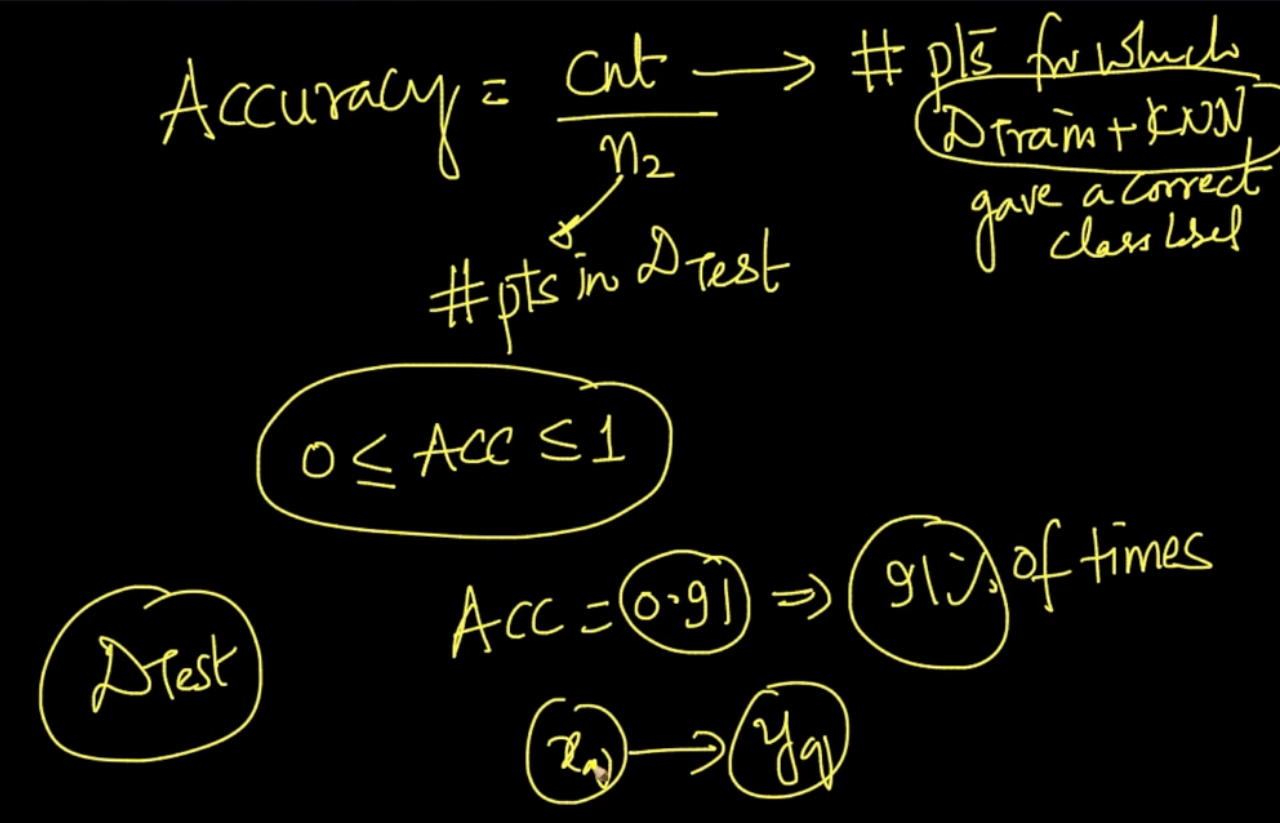 Accuracy = Cnt / n₂ → # pts for which
DTrain + KNN
gave a correct
class label
#pts in DTest
0 ≤ Acc ≤ 1
Acc = 0.91 ⇒ 91% of times
DTest
xq → yq